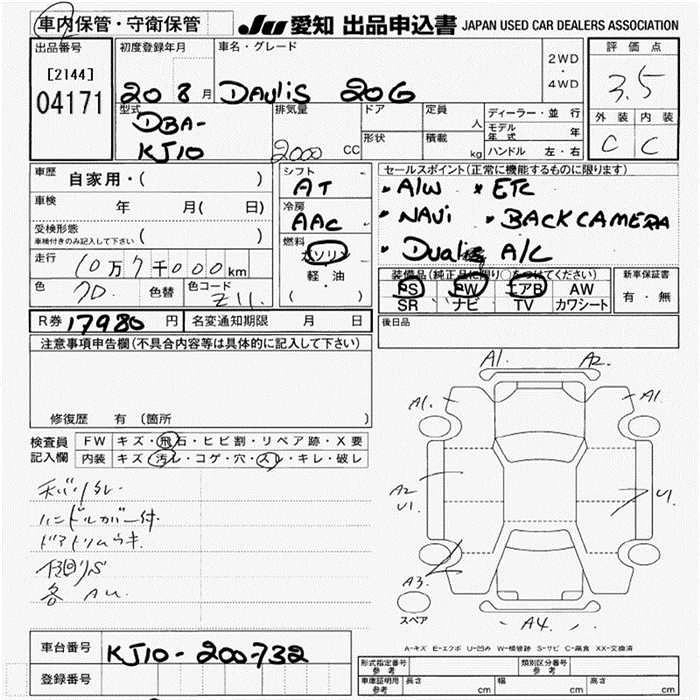 車内保管・守衛保管
JU 愛知 出品申込書 JAPAN USED CAR DEALERS ASSOCIATION
出品番号
[2144]
04171
初度登録年月
20 8 月
車名・グレード
DAULIS 20G
2WD
・
4WD
評価点
3.5
外装 内装
C C
型式
DBA-
KJ10
排気量
2000 CC
ドア
形状
定員
人
積載
kg
ディーラー・並行
モデル年式 年
ハンドル 左・右
車歴
自家用・( )
車検
年 月( 日)
受検形態
車検付きのみ記入して下さい ( )
走行
10万7千000km
色
色替
色コード
Z11.
シフト
AT
冷房
AAC
燃料
ガソリン
軽・油
( )
セールスポイント(正常に機能するものに限ります)
・A/W ・ETC
・NAVi ・BACKCAMERA
・Dual A/C
装備品(純正品に限り○をつけてください)
PS PW エアB AW
SR ナビ TV カワシート
新車保証書
有・無
R券 17980 円
名変通知期限 月 日
後日品
注意事項申告欄(不具合内容等は具体的に記入して下さい)
修復歴 有(箇所 )
検査員記入欄
FW キズ・飛石・ヒビ割・リペア跡・X要
内装 キズ・汚レ・コゲ・穴・スレ・キレ・破レ
ハンドルカバー付.
ドアトリムウキ.
下廻りサビ
各 AU.
A1. A2.
A1. A1.
A2
U1
U1.
A3.
A4.
スペア
A-キズ E-エクボ U-凹み W-補修跡 S-サビ C-腐食 XX-交換済
車台番号
KJ10-200732
登録番号
形式指定番号
参考
類別区分番号
参考
車庫証明用
参考
長さ cm
幅 cm
高さ cm